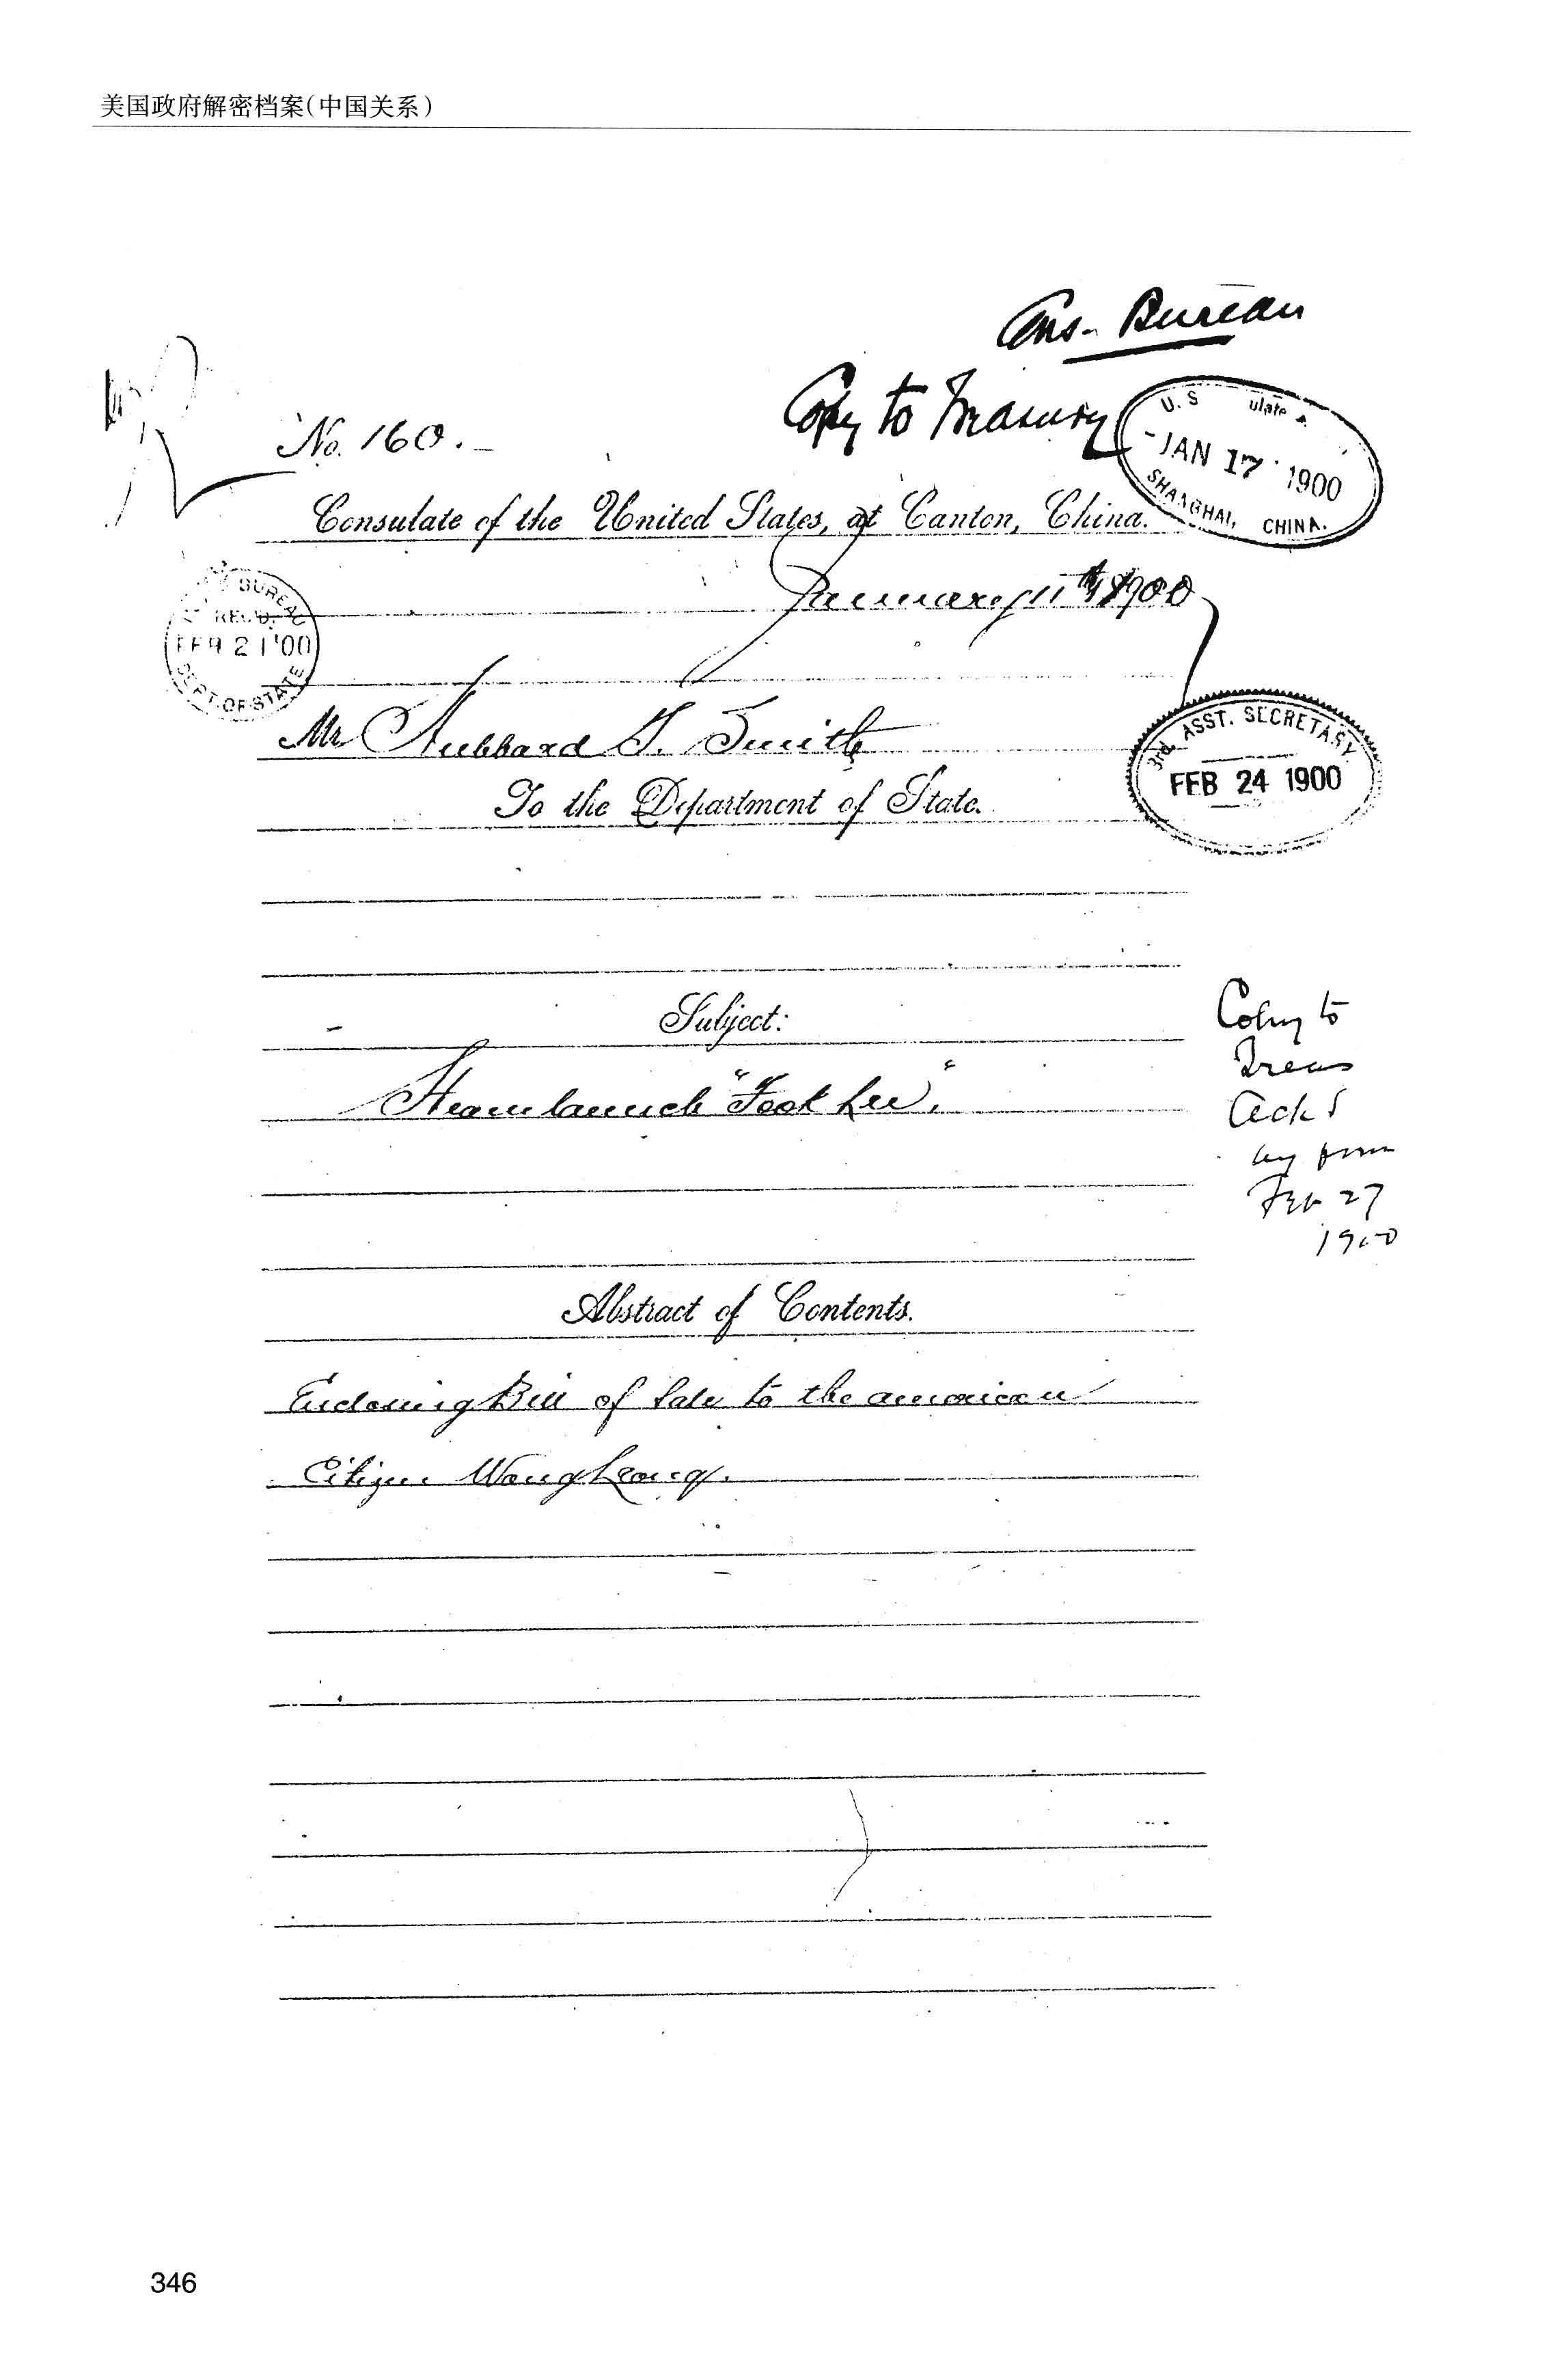 美国政府解密档案(中国关系)
Cons. Bureau
Copy to Treasury
No. 160.
U.S ulate
JAN 17 1900
SHANGHAI, CHINA.
Consulate of the United States, at Canton, China.
January 11th 1900
BUREAU
REC'D.
FEB 21 '00
DEPT. OF STATE
Mr Hubbard T. Smith
3rd. ASST. SECRETARY
FEB 24 1900
To the Department of State.
Subject:
Steamlaunch "Fook Lee".
Copy to
Treas
Ack'd
by form
Feb 27
1900
Abstract of Contents.
Enclosing Bill of Sale to the american
Citizen Wong Leong.
346